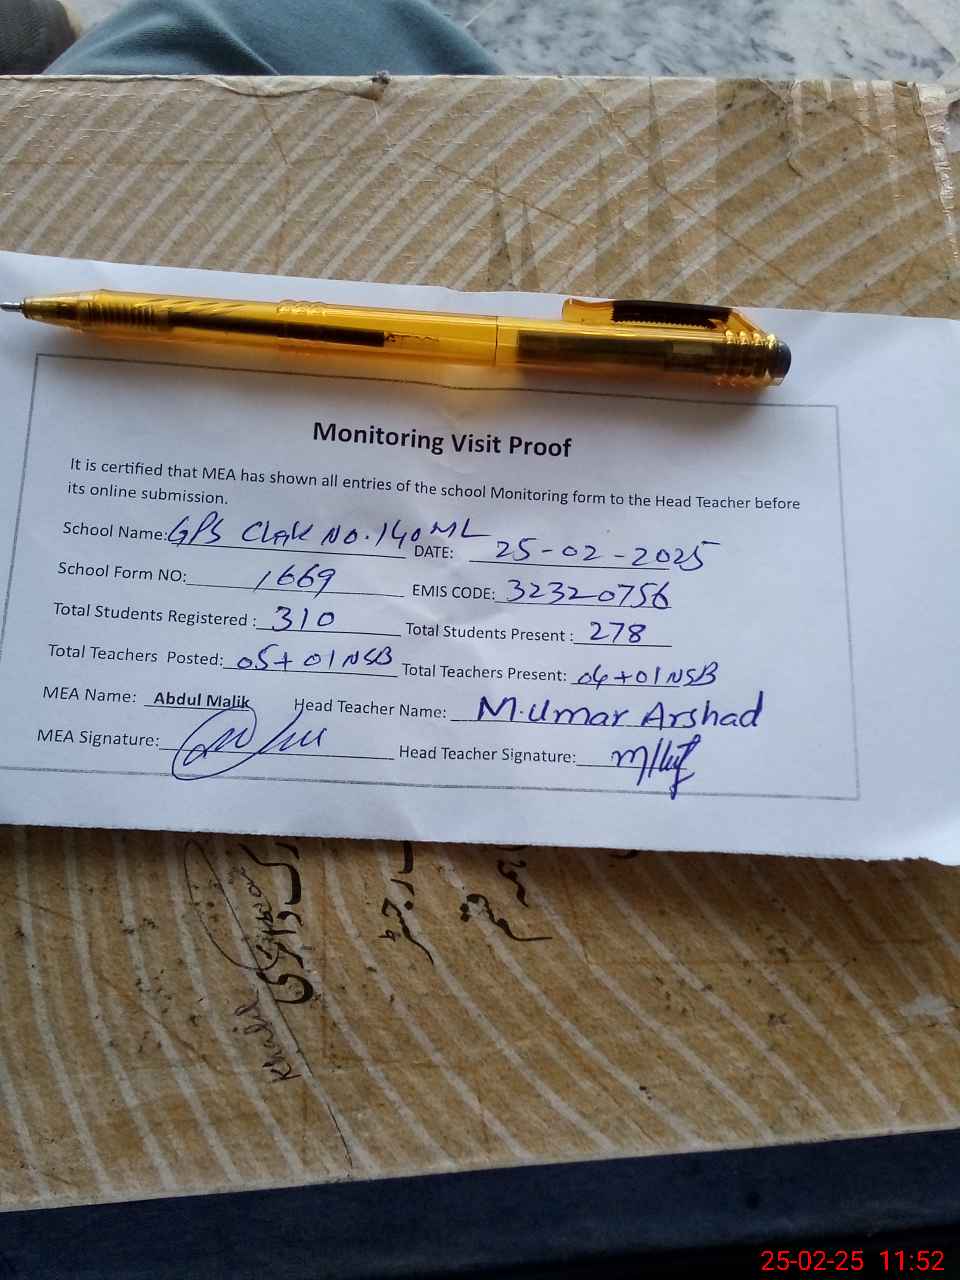 Monitoring Visit Proof
It is certified that MEA has shown all entries of the school Monitoring form to the Head Teacher before
its online submission.
School Name: GPS Chak No. 140 ML DATE: 25-02-2025
School Form NO: 1669 EMIS CODE: 32320756
Total Students Registered : 310 Total Students Present : 278
Total Teachers Posted: 05+01NSB Total Teachers Present: 04+01NSB
MEA Name: Abdul Malik Head Teacher Name: M. Umar Arshad
MEA Signature: Head Teacher Signature:
Khalil
25-02-25 11:52